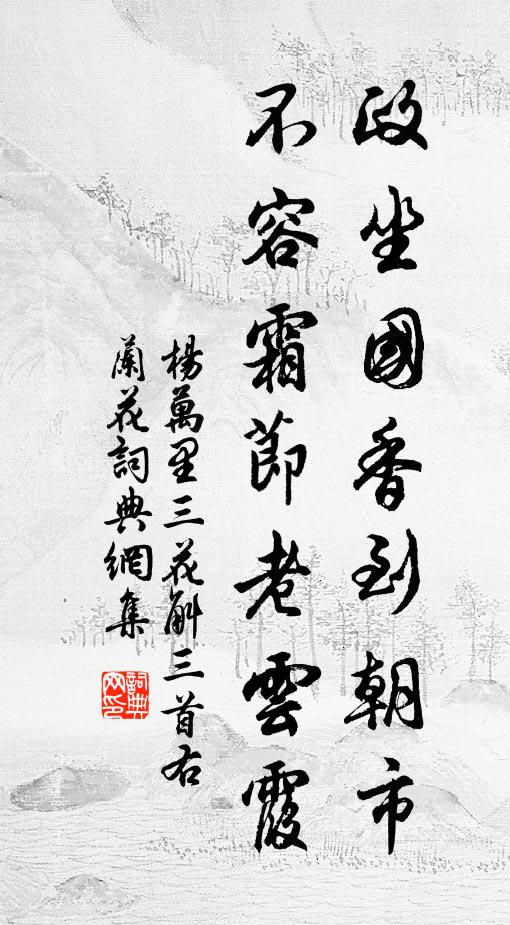 政坐國香到朝市
不容霜節老雲霞
楊萬里三花斛三首右
蘭花詞典網集
詞典網印